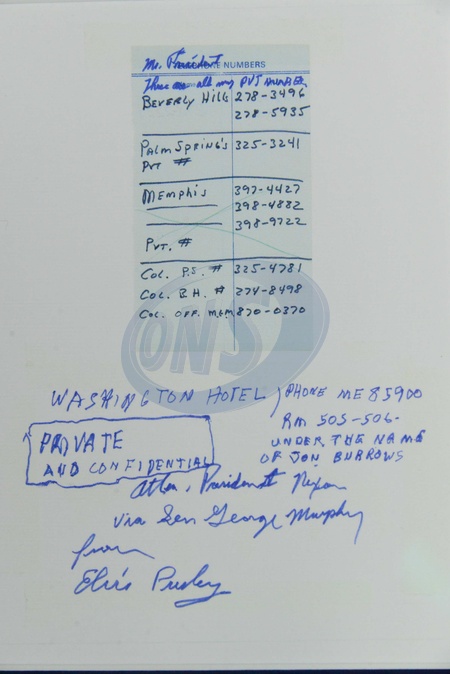 Mr. President
PHONE NUMBERS
These are all my PVT numbers
BEVERLY HILLS 278-3496
278-5935
PALM SPRING'S 325-3241
PVT #
MEMPHIS 397-4427
398-4882
398-9722
PVT. #
COL. P.S. # 325-4781
COL. B.H. # 274-8498
COL. OFF. MGM 870-0370
ONS
WASHINGTON HOTEL, PHONE ME 85900
RM 505-506-
UNDER THE NAME
OF JON BURROWS
PRIVATE
AND CONFIDENTIAL
Attn. President Nixon
via Sen George Murphy
from
Elvis Presley